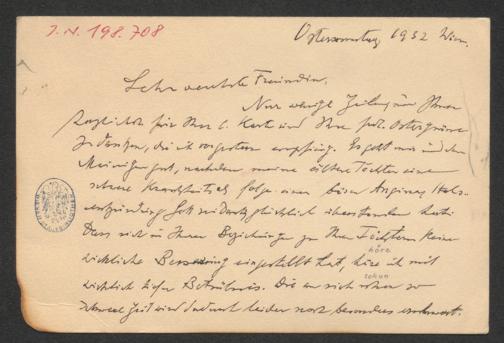 J. N. 198.708
Ostersonntag, 1932 Wien.
Sehr verehrte Freundin,
Nur wenige Zeilen, um Ihnen
herzlichst für Ihre l. Karte und Ihre frdl. Ostergrüsse
zu danken, die ich vorgestern empfing. Es geht mir und den
Meinigen gut, nachdem meine ältere Tochter eine
schwere Krankheit als Folge einer bösen Angina Hals-
entzündung Gott sei Dank glücklich überstanden hat.
Dass sich in Ihren Beziehungen zu Ihren Töchtern keine
wirkliche Besserung eingestellt hat, höre ich mit
höre
wirklich tiefer Betrübnis. Die an sich schon so
schon
schwere Zeit wird dadurch leider noch besonders erschwert.